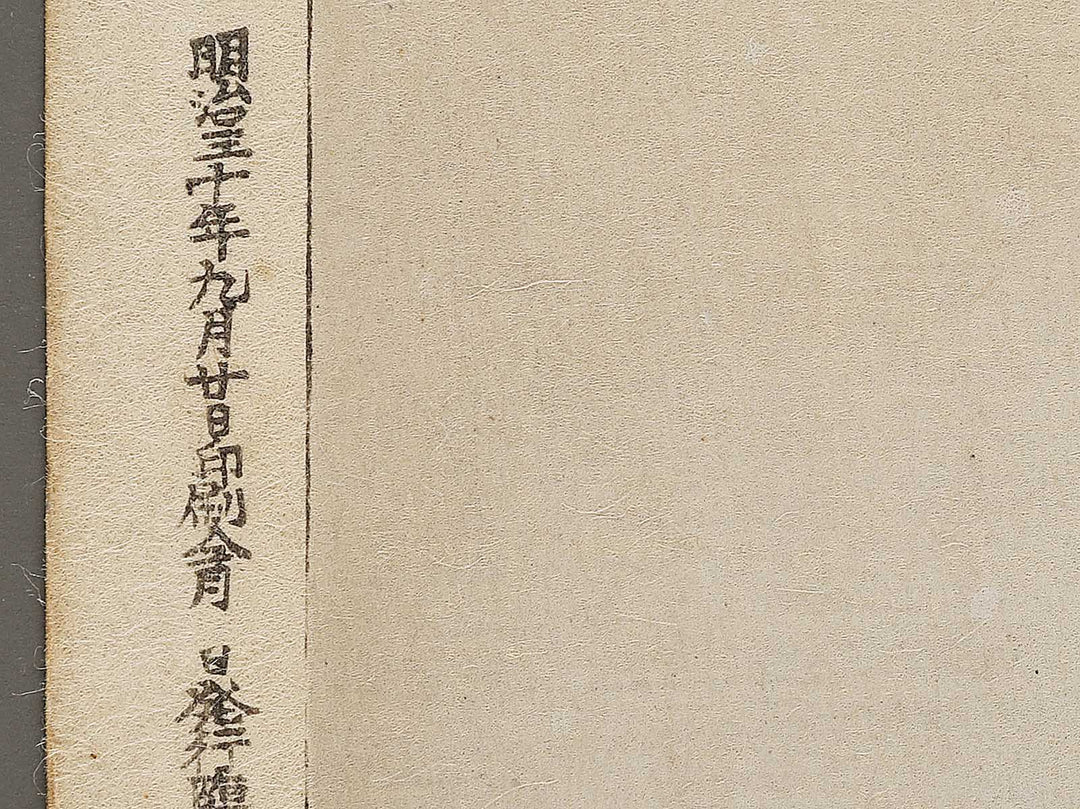 明治三十年九月廿日印刷仝月 日発行臨